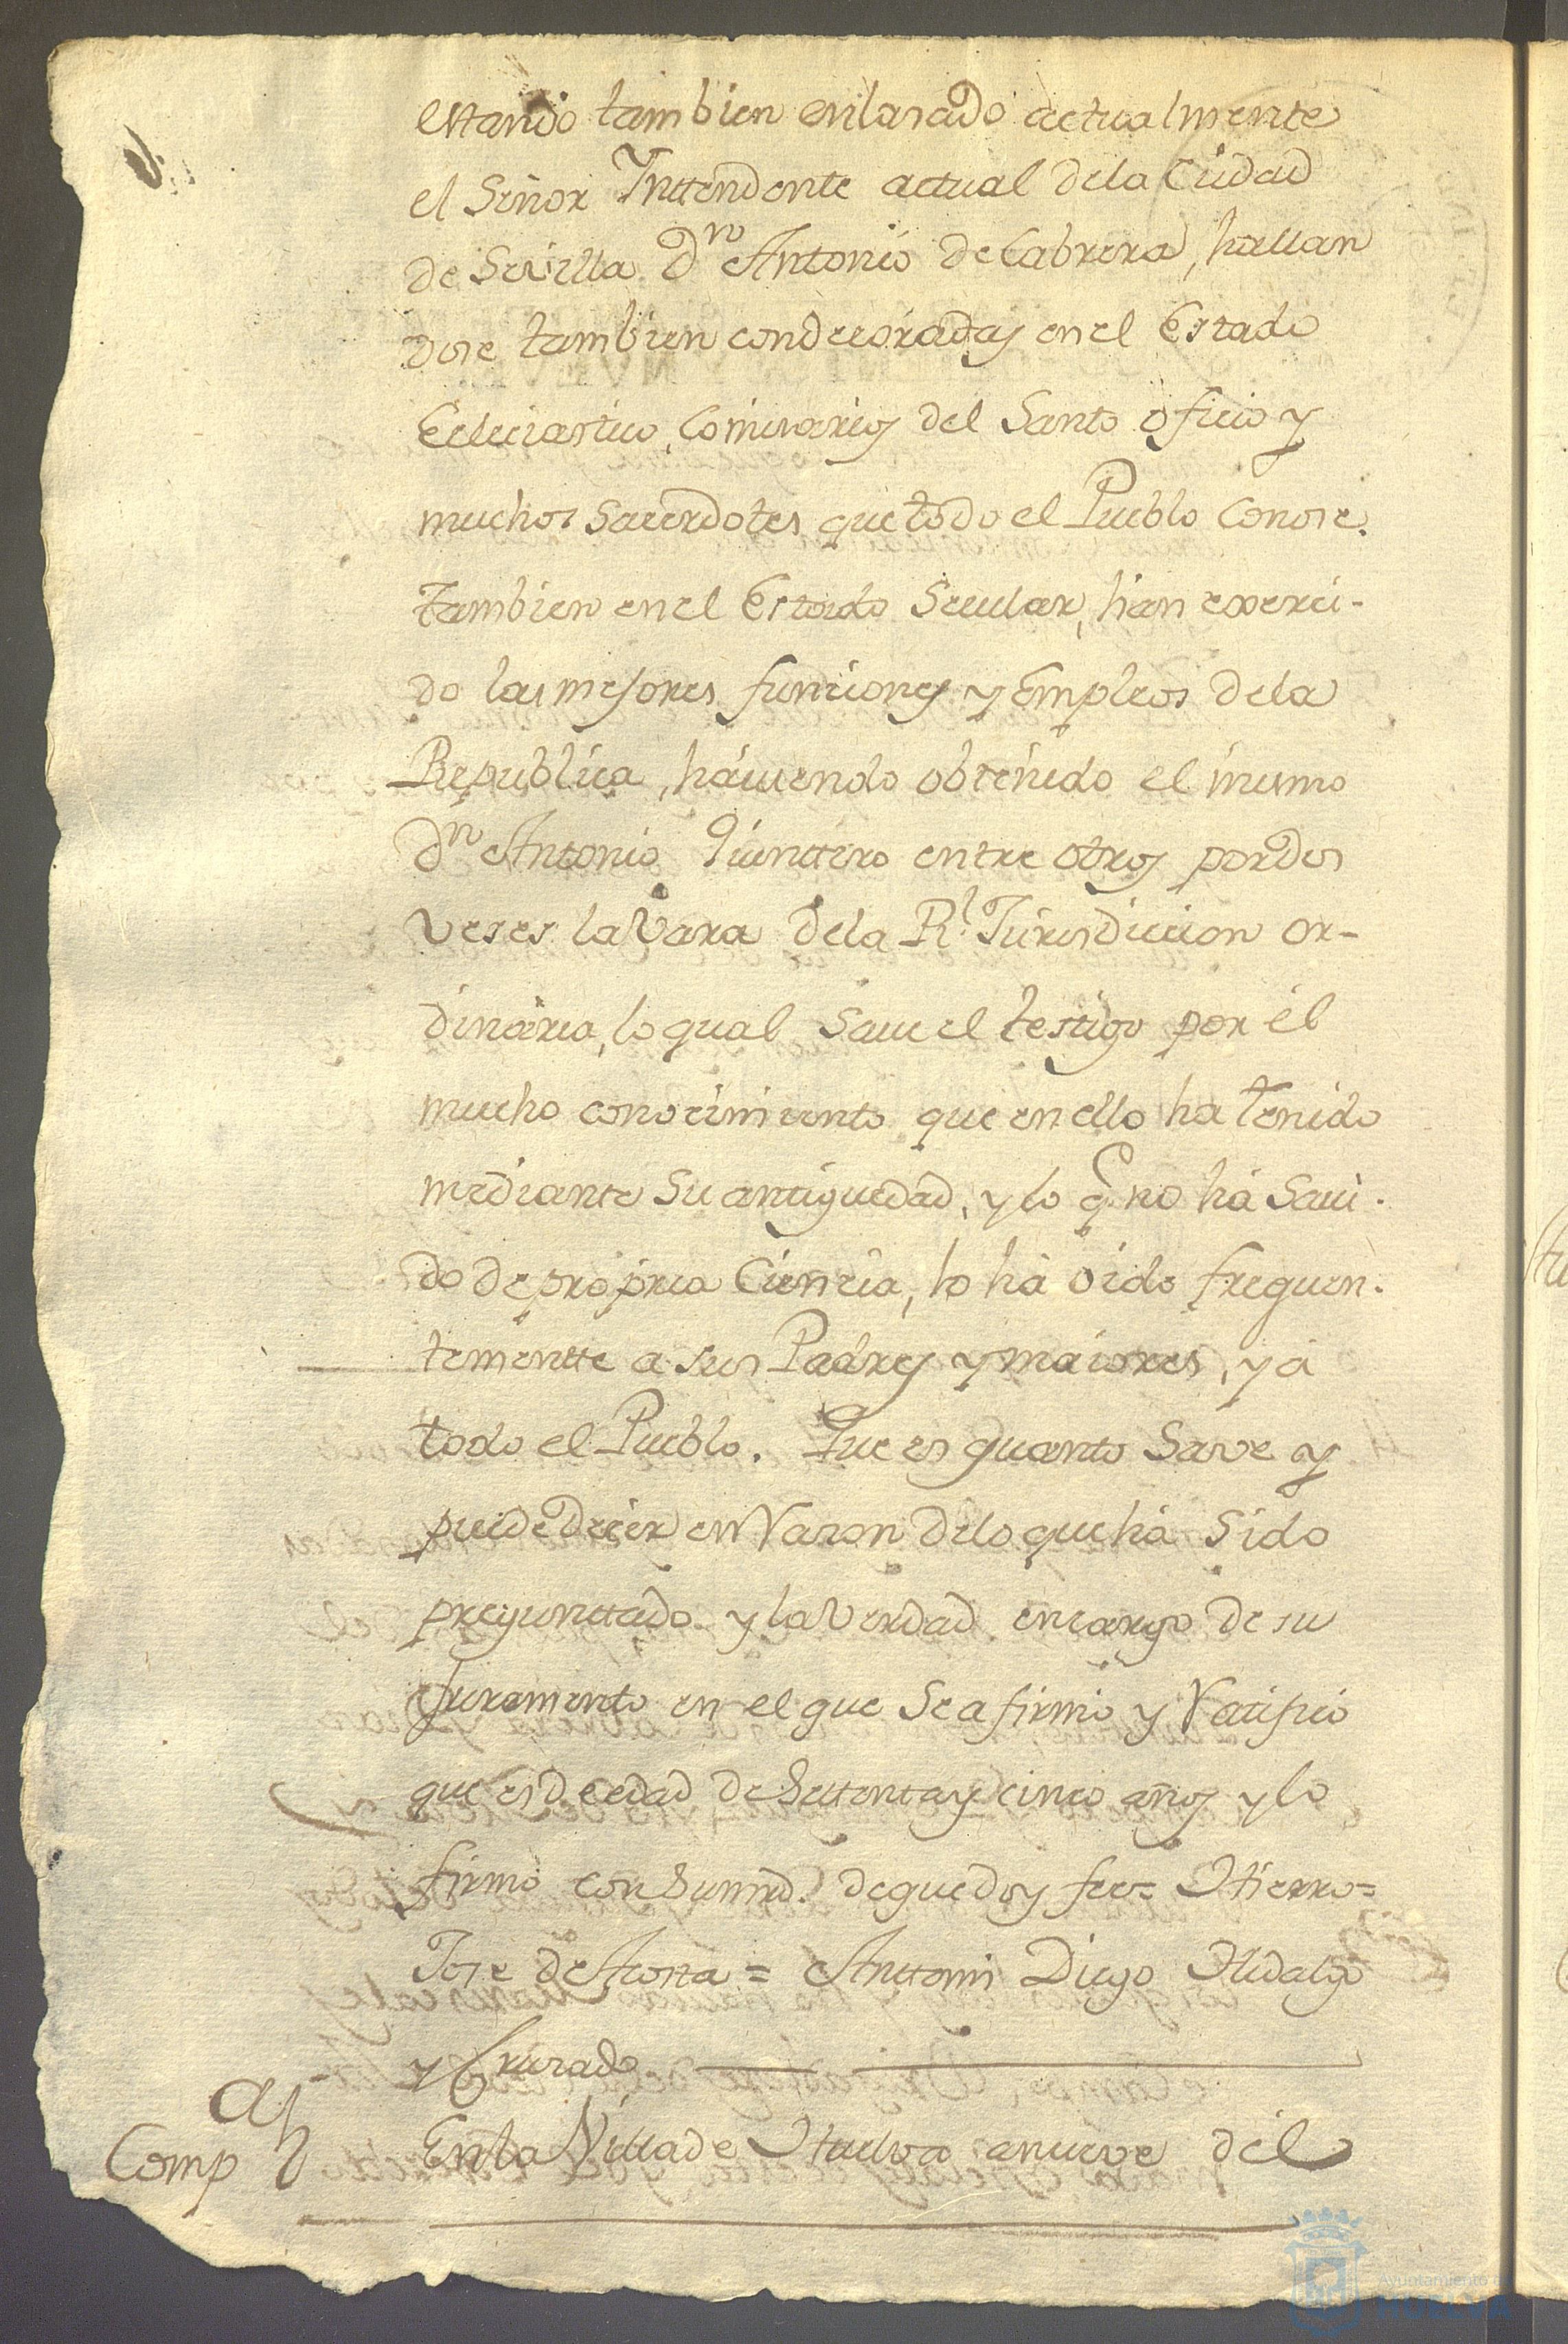 estando tambien enlasado actualmente
el Señor Inttendente actual dela Ciudad
de Sevilla Dn Antonio de Cabrera, hallan
dose tambien condecorados en el Estado
Eclesiastico, Comisarios del Santo oficio y
muchos Sacerdotes que todo el Pueblo Conose.
tambien en el Estado Secular, han exerci-
do las mejores funciones y Empleos dela
Republica, haviendo obtenido el mismo
Dn Antonio Quinttero entre otros por dos
veses la Vara dela Rl. Jurisdiccion or-
dinaria, lo qual Save el testigo por el
mucho conocimiento que en ello ha tenido
mediante Su antiguedad, y lo q. no ha Savi-
do de propria Ciencia, lo ha oido frequen-
tementte a sus Padres y maiores, y a
todo el Pueblo. Que es quanto Save y
puede decir en Rason delo que ha Sido
preguntado y la Verdad en cargo de su
Juramento en el que Se afirmó y Ratificó
que es de edad de Settenta y cinco años y lo
firmó con Su mrd. de que doy fee= Hierro=
Jose de Acosta = Anttonio Diego Hidalgo
y Cruzado
Comp
En la Villa de Huelva a nueve del
Ayuntamiento de
HUELVA